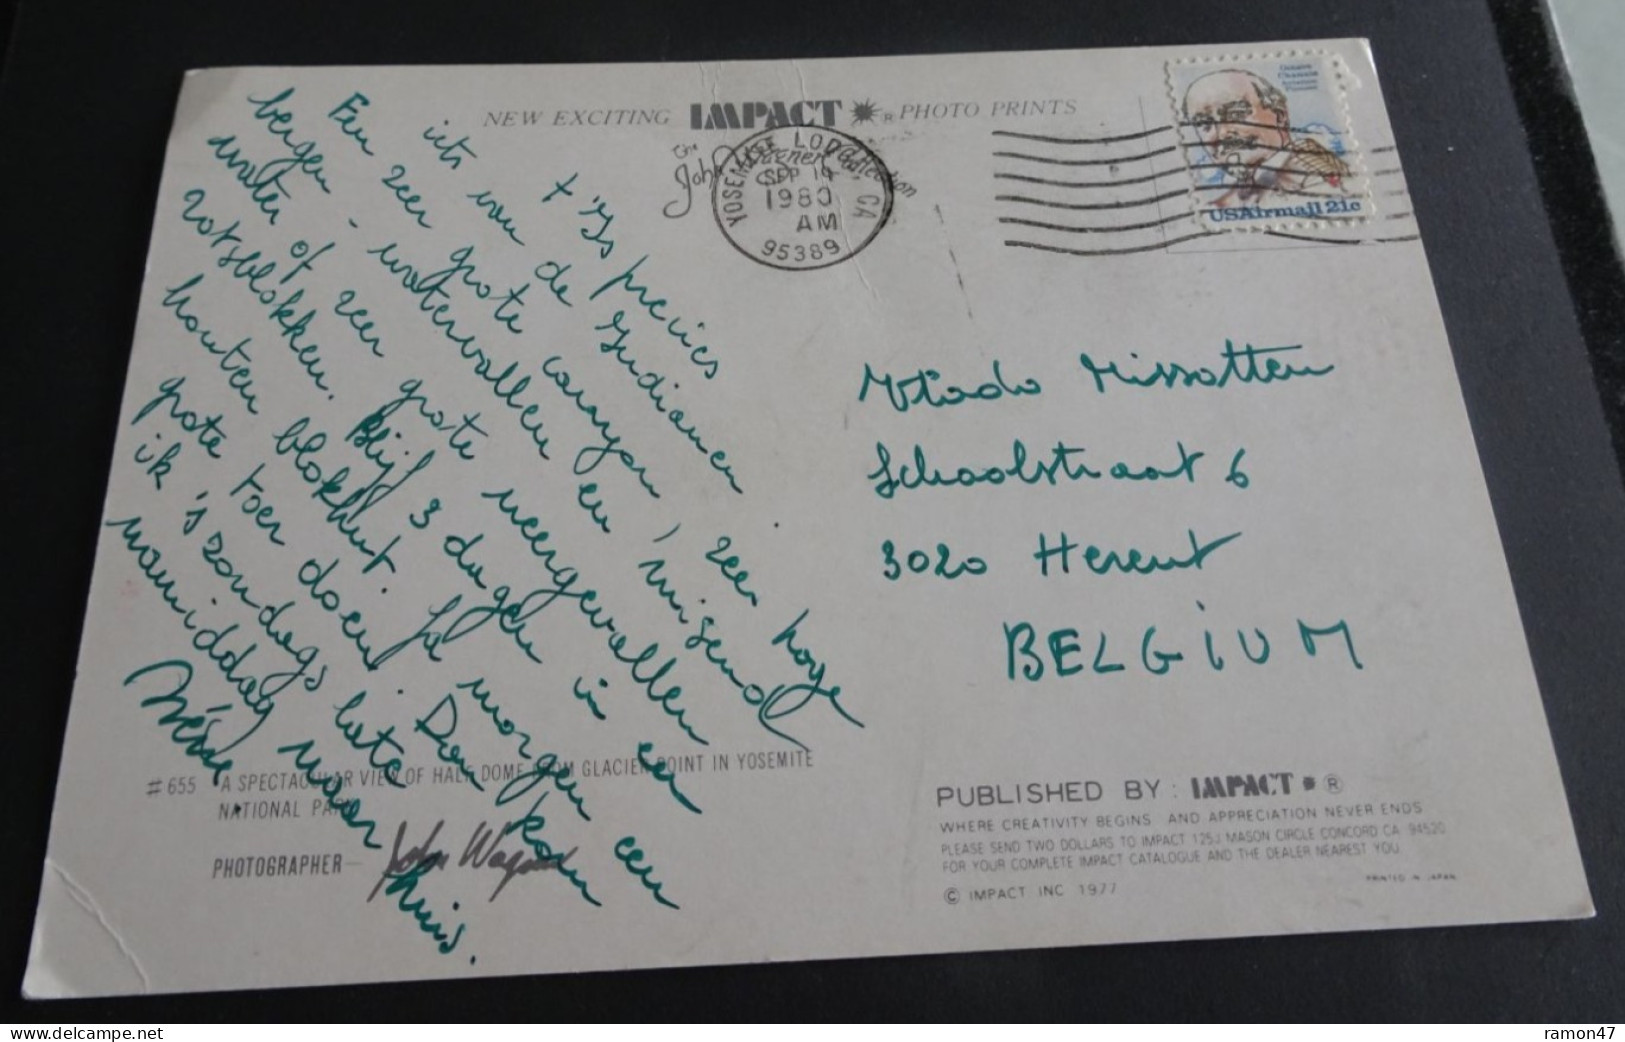 NEW EXCITING IMPACT ® PHOTO PRINTS
John Wagener Collection
YOSEMITE LODGE CA
SEP 19
1980
AM
95389
Octave
Chanute
Aviation
Pioneer
USAirmail 21c
't Is precies
iets van de Indianen
Een zeer grote canyon, zeer hoge
bergen - watervallen en muizend
water of zeer grote neergevallen
rotsblokken. Blijf 3 dagen in en
houten blokhut. Ga morgen een
grote toer doen. Dan kom
ik 's zondags late
namiddag naar huis.
Vlado Missotten
Schoolstraat 6
3020 Herent
BELGIUM
#655 A SPECTACULAR VIEW OF HALF DOME FROM GLACIER POINT IN YOSEMITE
NATIONAL PARK
PHOTOGRAPHER— John Wagener
PUBLISHED BY: IMPACT ®
WHERE CREATIVITY BEGINS AND APPRECIATION NEVER ENDS
PLEASE SEND TWO DOLLARS TO IMPACT 125J MASON CIRCLE CONCORD CA 94520
FOR YOUR COMPLETE IMPACT CATALOGUE AND THE DEALER NEAREST YOU
PRINTED IN JAPAN
© IMPACT INC 1977
delcampe.net
ramon47